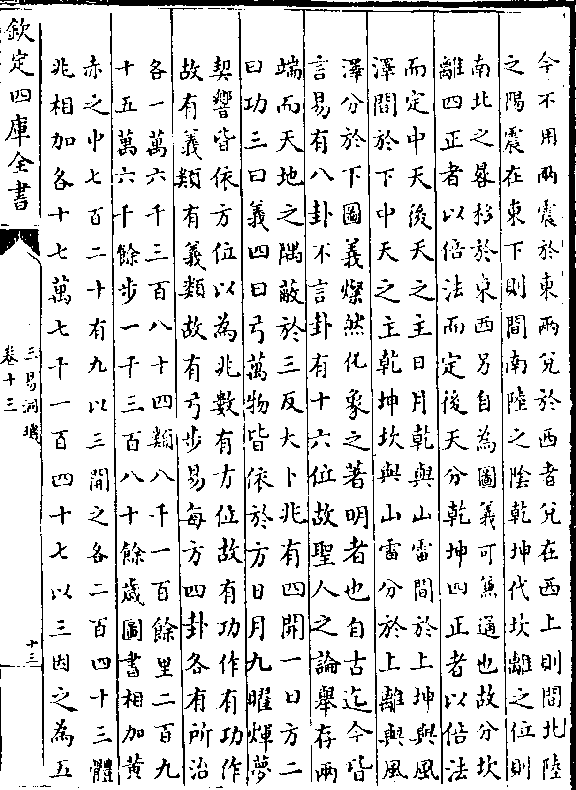 今不用兩震於東兩兌於西者兌在西上則間北陸
之陽震在東下則間南陸之陰乾坤代坎離之位則
南北之晷移於東西另自為圖義可無通也故分坎
離四正者以倍法而定後天分乾坤四正者以倍法
而定中天後天之主日月乾與山雷間於上坤與風
澤間於下中天之主乾坤坎與山雷分於上離與風
澤分於下圖義燦然化象之著明者也自古迄今皆
言易有八卦不言卦有十六位故聖人之論舉存兩
端而天地之隅蔽於三反大卜兆有四開一曰方二
曰功三曰義四曰弓萬物皆依於方日月九曜煇夢
契響皆依方位以為兆數有方位故有功作有功作
故有義類有義類故有弓步易每方四卦各有所治
各一萬六千三百八十四類八千一百餘里二百九
十五萬六千餘步一千三百八十餘歲圖書相加黃
赤之中七百二十有九以三間之各二百四十三體
兆相加各十七萬七千一百四十七以三因之為五
欽定四庫全書
三易洞璣
卷十三
十三